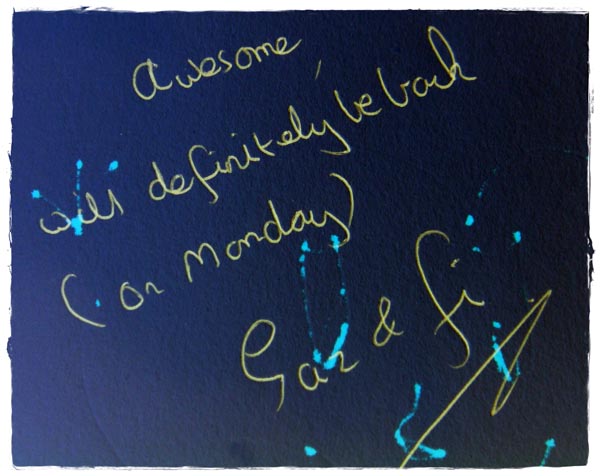 Awesome,
will definitely be back
(on Monday)
Gaz & Fi